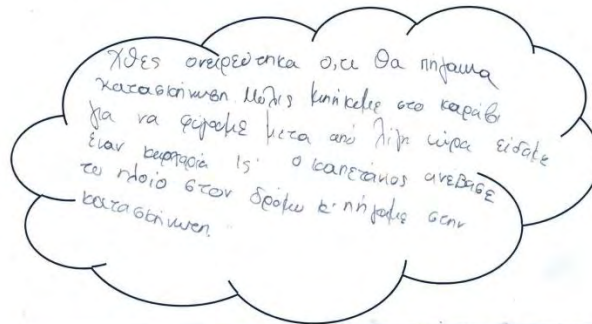 Χθες ονειρεύτηκα ό,τι θα πήγαινα
κατασκήνωση Μόλις μπήκαμε στο καράβι
για να φύγουμε μετα από λίγη ώρα είδαμε
έναν καρχαρία ο καπετάνιος ανέβασε
το πλοίο στον δρόμο κ' πήγαμε στην
κατασκήνωση.